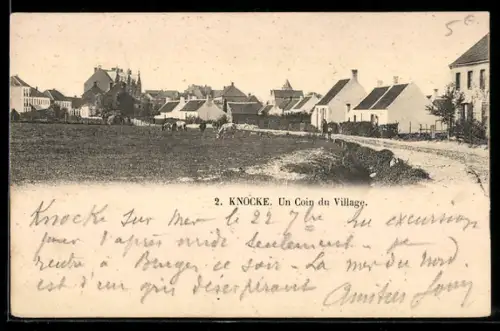 5€
2. KNOCKE. Un Coin du Village.
Knocke sur Mer le 22 7bre En excursion
pour l'après midi seulement - je
rentre à Bruges ce soir - La mer du Nord
est d'un gris désespérant Amitiés